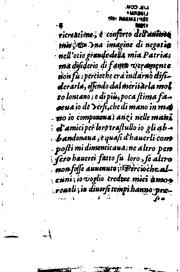 ricreatione, e conforto dell'animo
mio, una imagine di negotio
nell'otio grande della mia Patria:
ma disiderio di fama veramente
non fu: percioche era indarno disi-
derarla, essendo dal meritarla mol
to lontano; e di più, poca stima fa-
ceua io de' versi, che di mano in ma
no io componeua; anzi nelle mani
d'amici per loro trastullo io gli ab
bandonaua, e quasi d'hauerli com
posti mi dimenticaua: ne altro pen
siero hauerei fatto su loro, se altro
non fosse auuenuto; Percioche, al-
cuni, io voglio credere miei amo-
reuoli, in diuersi tempi hanno pre-